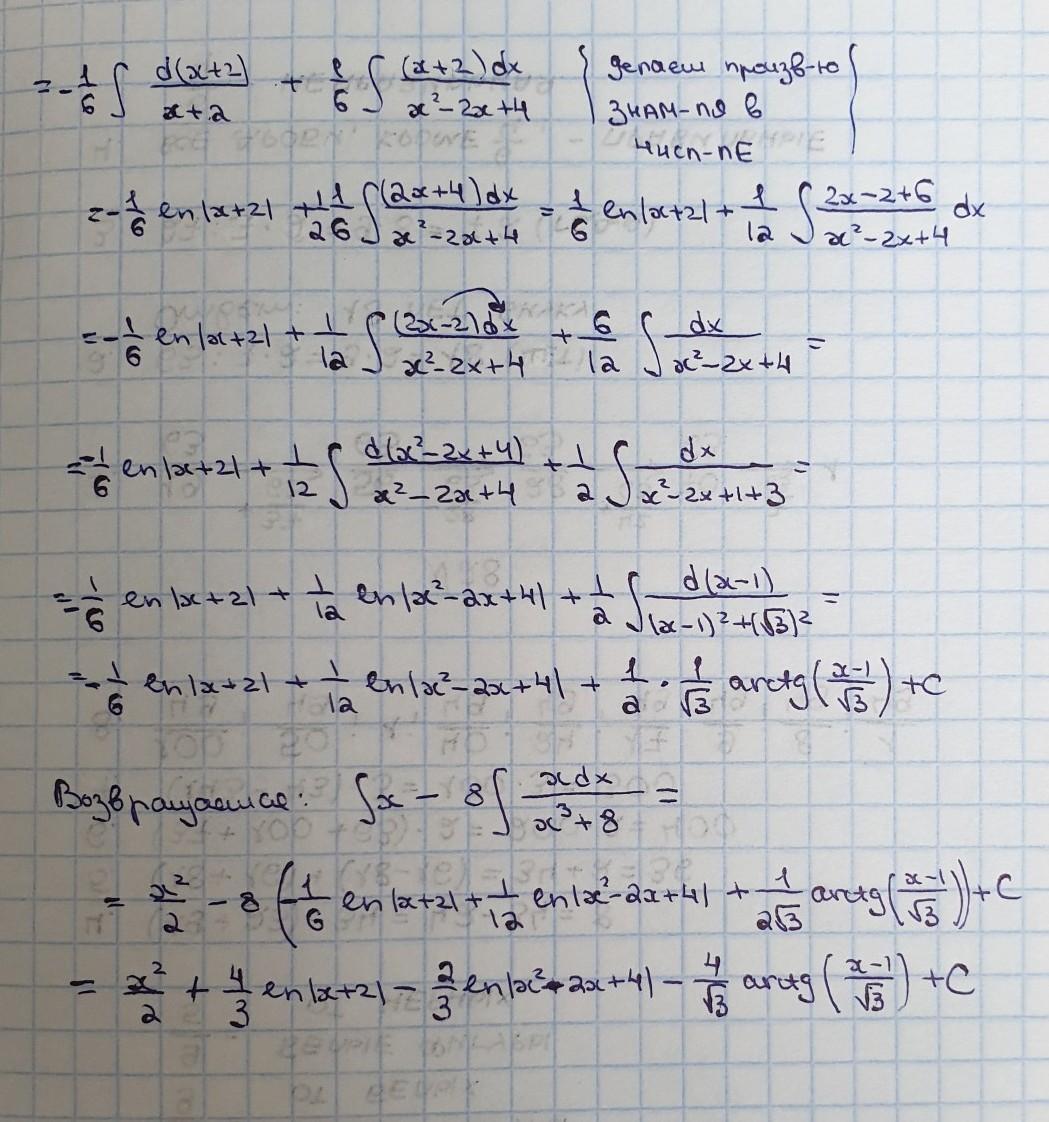 = -1/6 ∫ d(x+2)/(x+2) + 1/6 ∫ (x+2)dx/(x²-2x+4) { делаем произв-ю
знам-ля в
числ-лЕ }
= -1/6 ln|x+2| + 1/2 1/6 ∫ (2x+4)dx/(x²-2x+4) = 1/6 ln|x+2| + 1/12 ∫ (2x-2+6)/(x²-2x+4) dx
= -1/6 ln|x+2| + 1/12 ∫ (2x-2)dx/(x²-2x+4) + 6/12 ∫ dx/(x²-2x+4) =
= -1/6 ln|x+2| + 1/12 ∫ d(x²-2x+4)/(x²-2x+4) + 1/2 ∫ dx/(x²-2x+1+3) =
= -1/6 ln|x+2| + 1/12 ln|x²-2x+4| + 1/2 ∫ d(x-1)/((x-1)²+(√3)²) =
= -1/6 ln|x+2| + 1/12 ln|x²-2x+4| + 1/2 · 1/√3 arctg((x-1)/√3) + C
Возвращаемся: ∫x - 8∫ xdx/(x³+8) =
= x²/2 - 8 (-1/6 ln|x+2| + 1/12 ln|x²-2x+4| + 1/(2√3) arctg((x-1)/√3)) + C
= x²/2 + 4/3 ln|x+2| - 2/3 ln|x²-2x+4| - 4/√3 arctg((x-1)/√3) + C